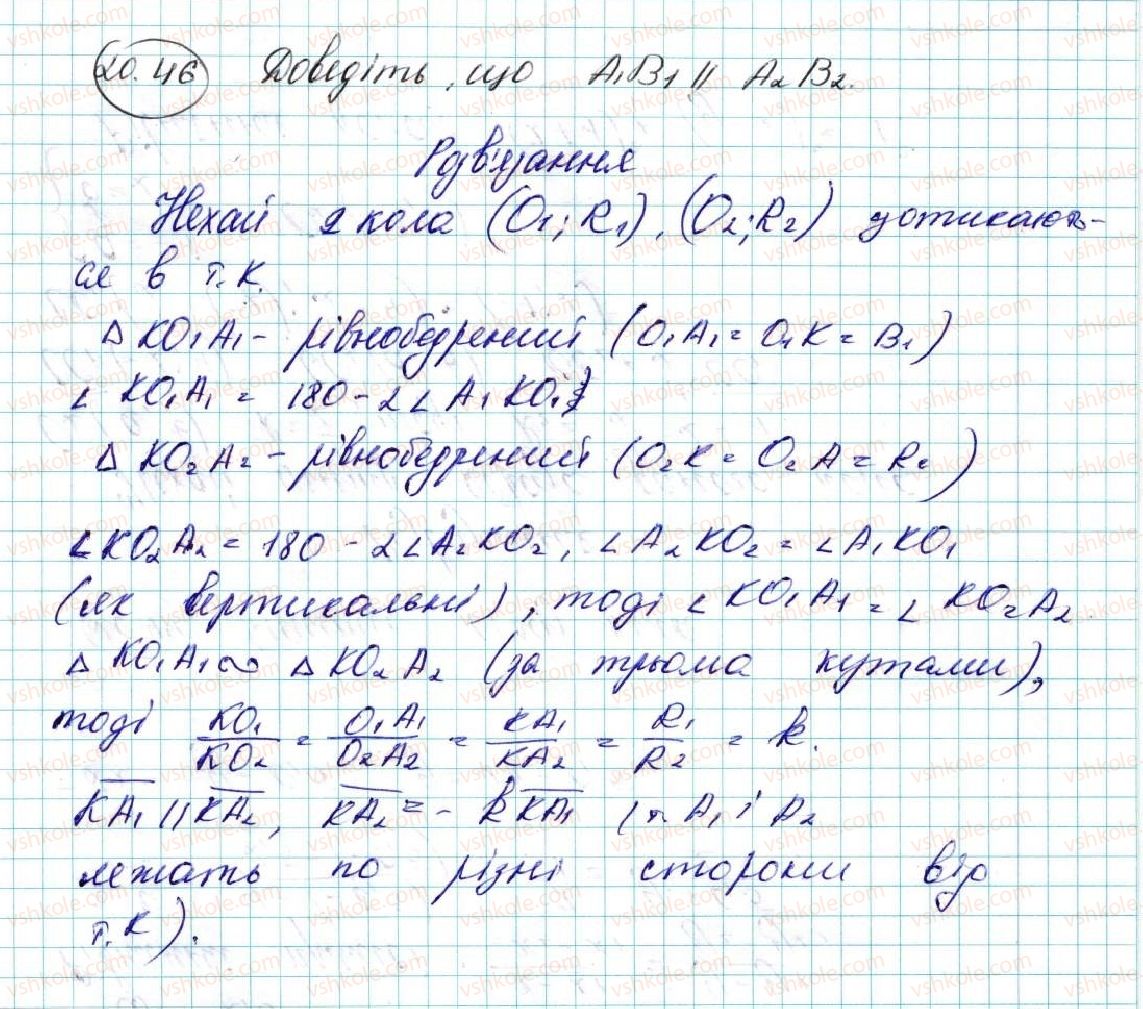 20.46 Доведіть, що A₁B₁ || A₂B₂.
Розв'язання
Нехай 2 кола (O₁; R₁), (O₂; R₂) дотикають-
ся в т. К.
△ KO₁A₁ - рівнобедрений (O₁A₁ = O₁K = B₁)
∠ KO₁A₁ = 180 - 2∠ A₁KO₁
△ KO₂A₂ - рівнобедрений (O₂K = O₂A = R₂)
∠KO₂A₂ = 180 - 2∠A₂KO₂, ∠A₂KO₂ = ∠A₁KO₁
(як вертикальні), тоді ∠ KO₁A₁ = ∠ KO₂A₂
△ KO₁A₁ ∾ △ KO₂A₂ (за трьома кутами),
тоді KO₁/KO₂ = O₁A₁/O₂A₂ = KA₁/KA₂ = R₁/R₂ = k.
K̅A̅₁ || K̅A̅₂, K̅A̅₂ = - k K̅A̅₁ (т. A₁ і A₂
лежать по різні сторони від
т. К).